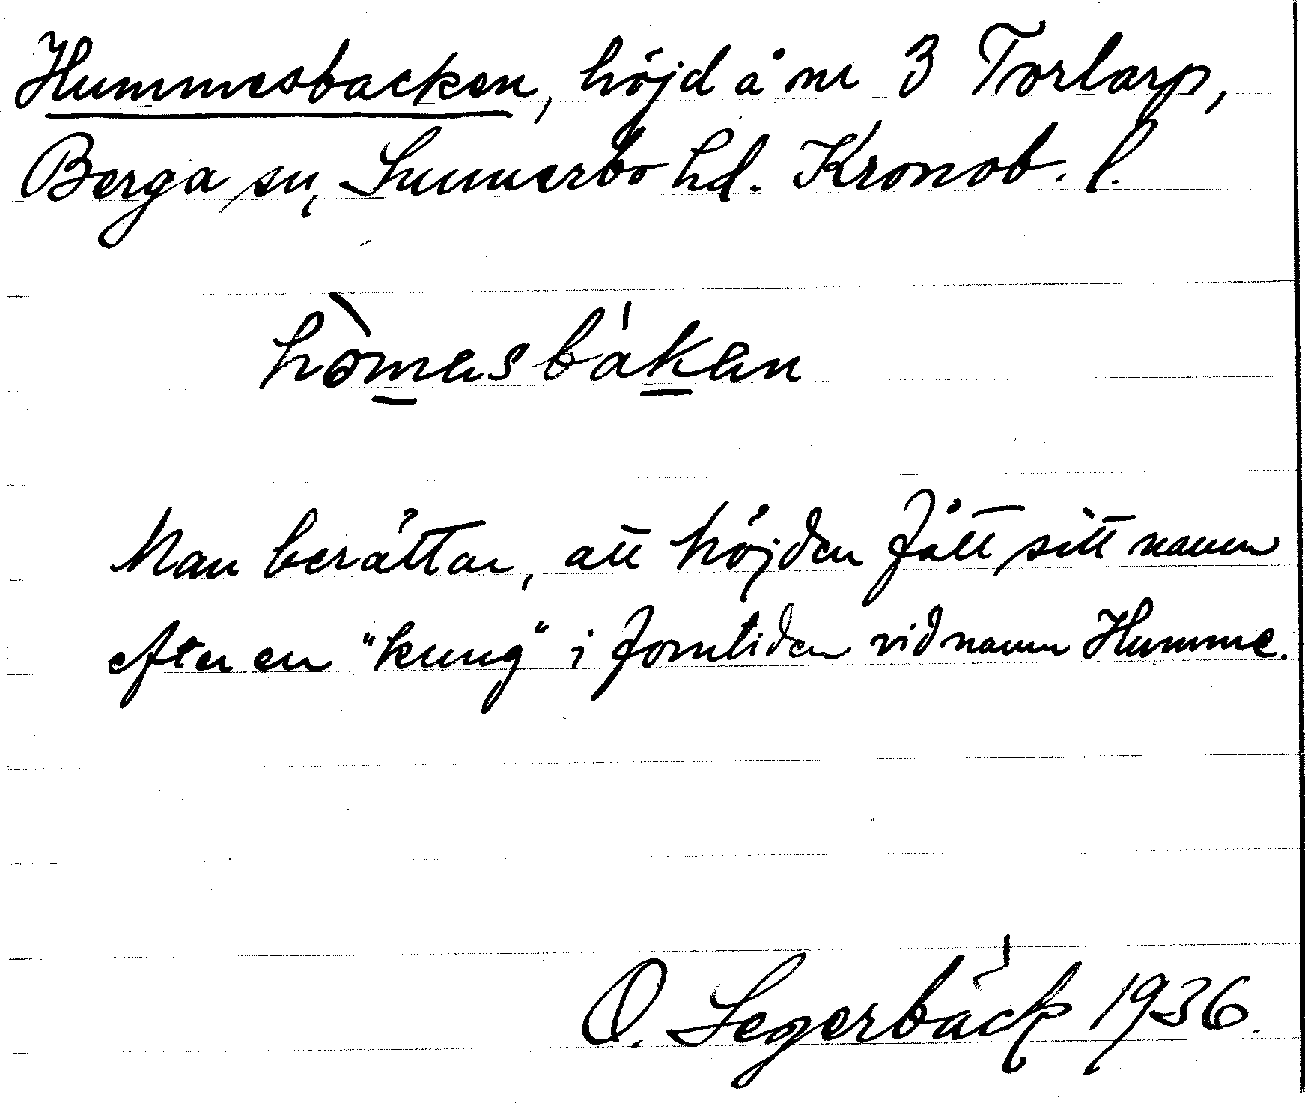 Hummesbacken, höjd å nr 3 Torlarp,
Berga sn, Sunnerbo hd. Kronob. l.
hòmasbákan
Man berättar, att höjden fått sitt namn
efter en "kung" i forntiden vid namn Humme.
O. Segerbäck 1936.